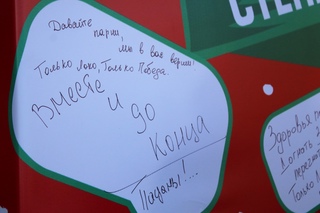 Давайте
парни, мы в вас верим!
Только Локо, Только Победа.
Вместе
и
до
Конца
Пацаны!...
СТЕН
Здоровья п
Догнать
Только Л